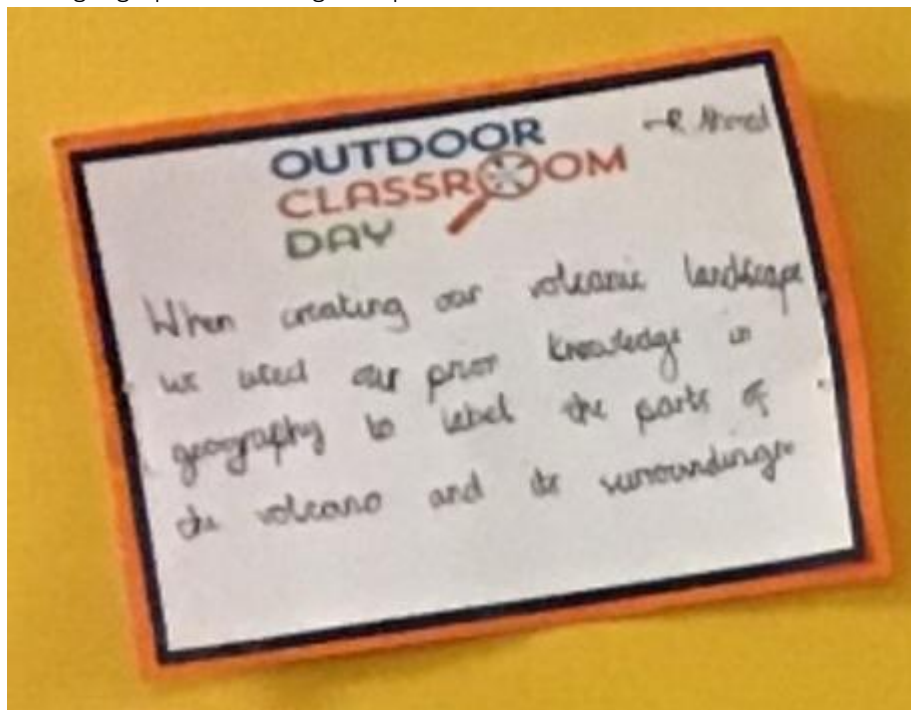 OUTDOOR
CLASSROOM
DAY
When creating our volcanic landscape
we used our prior knowledge in
geography to label the parts of
the volcano and its surroundings